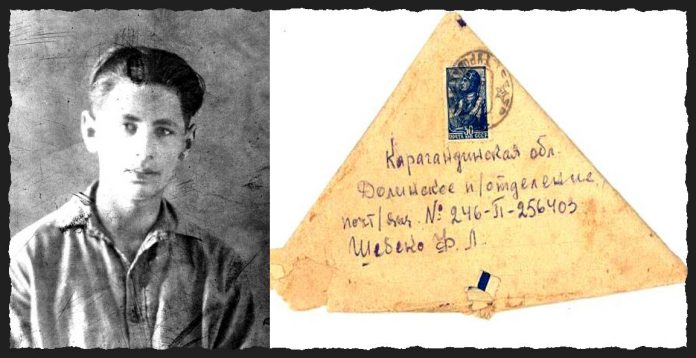 30
ПОЧТА СССР
Карагандинская обл.
Долинское п/отделение,
почт/ящ. № 246-П-256403
Шебеко Ф. Л.